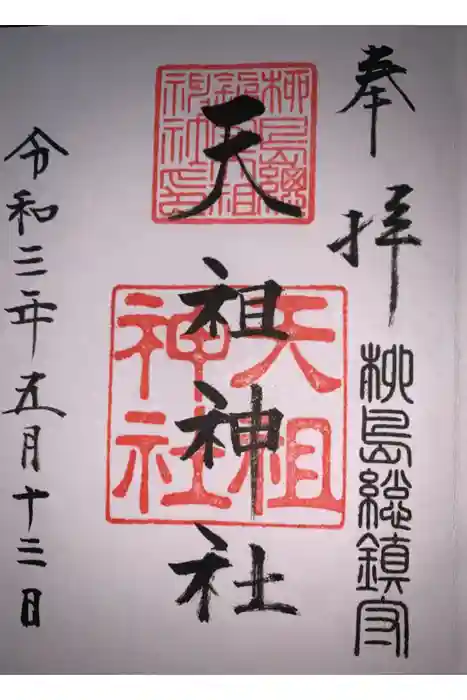 奉拝
柳島総鎮守
天祖神社
天祖神社
令和三年五月十三日